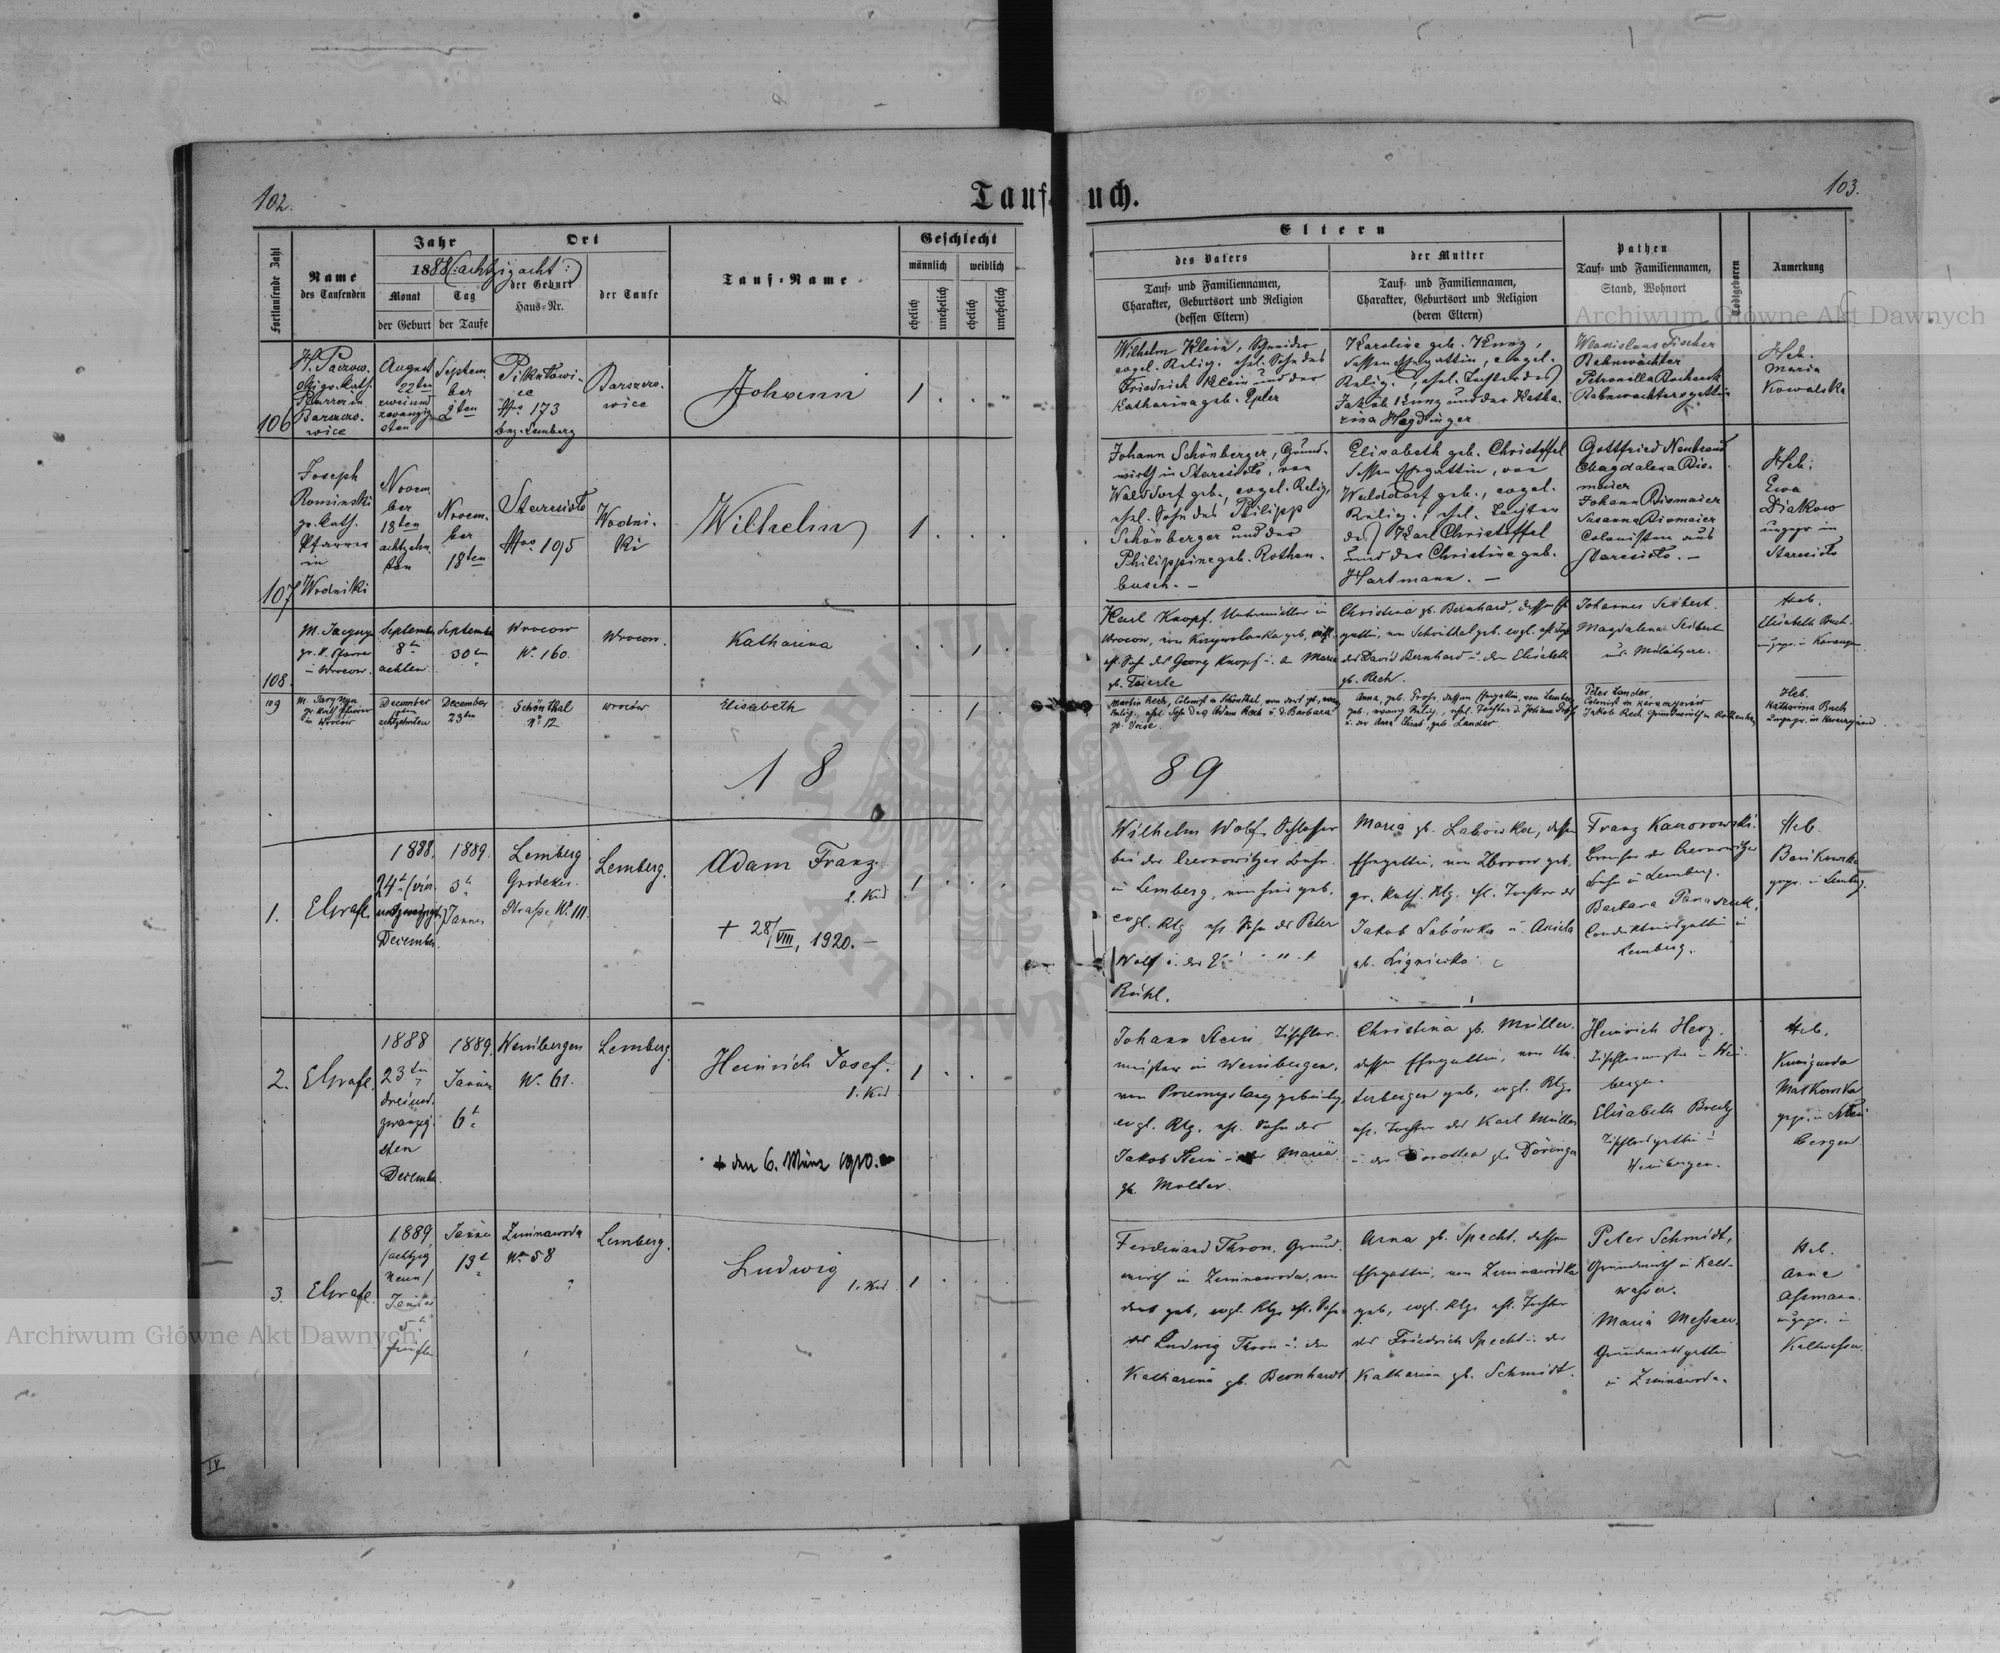 102.
Taufbuch.
103.
Fortlaufende Zahl
Name
des Taufenden
Jahr
1888 (: achtzigacht :)
Monat
Tag
der Geburt
der Taufe
Ort
der Geburt
Haus-Nr.
der Taufe
Tauf-Name
Geschlecht
männlich
weiblich
ehelich
unehelich
ehelich
unehelich
Eltern
des Vaters
Tauf- und Familiennamen,
Charakter, Geburtsort und Religion
(dessen Eltern)
der Mutter
Tauf- und Familiennamen,
Charakter, Geburtsort und Religion
(deren Eltern)
Pathen
Tauf- und Familiennamen,
Stand, Wohnort
Todtgeboren
Anmerkung
Archiwum Główne Akt Dawnych
106
gr. kath.
Pfarrer in
Barszczo-
wice
August
22ten
zwei und
zwanzig
sten
Septem-
ber
2ten
Pikulowi-
ce
Nro 173
bez. Lemberg
Barszczo-
wice
Johann
1
Wilhelm Klein, Schneider
evgel. Relig. ehel. Sohn des
Friedrich Klein und der
Katharina geb. Epler
Karoline geb. Kunz,
dessen Ehegattin, evgel.
Relig., ehel. Tochter des
Jakob Kunz und der Katha-
rina Heydinger
Wladislaus Fischer
Bahnwächter
Petronella
Bahnwächtersgattin
Heb.
Maria
Kowalska
107
Joseph
Rominski
gr. kath.
Pfarrer
in
Wodniki
Novem-
ber
18ten
achtzehn-
ten
Novem-
ber
18ten
Staresioło
Nro 105
Wodni-
ki
Wilhelm
1
Johann Schönberger, Grund-
wirth in Staresioło, von
Walddorf geb., evgel. Relig.,
ehel. Sohn des Philipp
Schönberger und der
Philippine geb. Rothen-
busch. –
Elisabeth geb. Christoffel
dessen Ehegattin, von
Walddorf geb., evgel.
Relig., ehel. Tochter
des Karl Christoffel
und der Christine geb.
Hartmann. –
Gottfried Neubrand
Magdalena Bis-
maier
Johann Bismaier
Susanna Bismaier
Colonisten aus
Staresioło. –
Heb.
Ewa
Diakow
ungepr. in
Staresioło
108.
gr. k. Pfarrer
in Wrocow.
September
8ten
achten
September
30ten
Wrocow
N. 160.
Wrocow.
Katharina
1
Karl Knopf, in
Wrocow, von geb.
ehl. Sohn des Georg Knopf u. der Marie
gb. Feierle
Christina gb. Bernhard, dessen Ehe-
gattin, von Schönthal geb. evgl. ehl. Tocht.
des David Bernhard u. der Elisabeth
gb. Rech.
Johannes Seibert.
Magdalena Seibert
Heb.
Elisabeth Buch.
109
gr. kath. Pfarrer
in Wrocow
December
achtzehnten
December
23ten
Schönthal
No 12
Wrocow
Elisabeth
1
Martin Rech, Colonist in Schönthal, von dort gb., evang.
Relig., ehel. Sohn des Adam Rech u. d. Barbara
Anna, geb. Profs, dessen Ehegattin, von Lemberg
geb., evang. Relig., ehel. Tochter d. Johann Profs
geb. Lander
Peter Lander,
Colonist in
Jakob Rech, Grundwirth in
Heb.
Katharina Buch
ungepr. in
18 89
1.
EGrafl.
1888.
24t. (vier
und zwanzigst.)
December.
1889.
3t.
Januar
Lemberg
Grodeker-
Straße No 111.
Lemberg.
Adam Franz.
2. Kid
+ 28/VIII, 1920. –
1
Wilhelm Wolf, Schlosser
bei der Czernowitzer Bahn
in Lemberg, von hier geb.
evgl. Rlg. ehl. Sohn des Peter
Wolf u. der
Rühl.
Maria gb. Labówka, dessen
Ehegattin, von Zborow geb.
gr. kath. Rlg. ehl. Tochter des
Jakob Labówka u.
gb.
Franz
der Czernowitzer
Bahn in Lemberg.
Barbara
Conducteursgattin in
Lemberg.
Heb.
gepr. in Lemberg.
2.
EGrafl.
1888
23ten
dreiund-
zwanzig-
sten
December.
1889.
Januar
6t.
Weinbergen
N. 61.
Lemberg.
Heinrich Josef.
1. Kid
+ den 6. März 1910.
1
Johann Stein, Tischler-
meister in Weinbergen,
von Przemyslany gebürtig,
evgl. Rlg. ehl. Sohn des
Jakob Stein u. der Marie
gb. Molter.
Christina gb. Müller,
dessen Ehegattin, von Un-
terbergen geb., evgl. Rlg.
ehl. Tochter des Karl Müller
u. der Dorothea gb. Döringer
Heinrich Herz.
Tischlermeister in Wein-
bergen.
Elisabeth
Tischlersgattin in
Weinbergen.
Heb.
Kunigunda
Matkowska
gepr. in Wein-
bergen
3.
EGrafl.
1889
(achtzig
neun)
Januar
5t.
fünften
Januar
13t.
Zimnawoda
No 58
Lemberg.
Ludwig
1. Kid
1
Ferdinand Thron, Grund-
wirth in Zimnawoda, von
dort geb., evgl. Rlg. ehl. Sohn
des Ludwig Thron u. der
Katharina gb. Bernhardt.
Anna gb. Specht, dessen
Ehegattin, von Zimnawodka
geb., evgl. Rlg. ehl. Tochter
des Friedrich Specht u. der
Katharina gb. Schmidt.
Peter Schmidt,
Grundwirth in Kalt-
wasser.
Maria Messner,
Grundwirthsgattin
in Zimnawoda.
Heb.
Anna
Assmann.
ungepr. in
Kaltwasser.
Archiwum Główne Akt Dawnych
IV
ARCHIWUM GŁÓWNE
AKT DAWNYCH